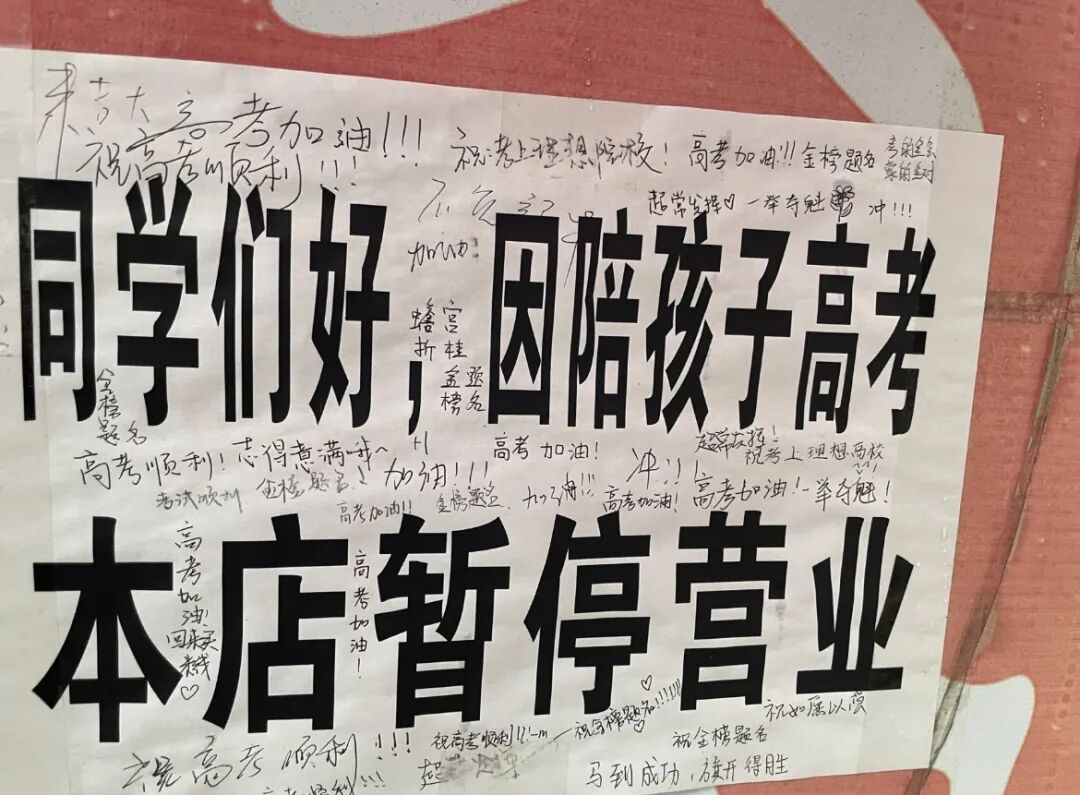 高考加油!!!
祝高考顺利!!!
祝考上理想院校!
高考加油!!!金榜题名
考的全会
蒙的全对
超常发挥♡ 一举夺魁 冲!!!
加油!
同学们好,因陪孩子高考
蟾宫
折桂
金榜题名
金榜题名
+1
高考加油!
超常发挥!
祝考上理想高校
高考顺利!志得意满哦~
加油!!!
冲!!!
考试顺利
金榜题名!
高考加油!!
金榜题名
加油!!!
高考加油!
高考加油!一举夺魁!
本店暂停营业
高考加油!
回来买
米线♡
高考加油!
祝高考顺利!!!
祝高考顺利!!!
祝金榜题名!!!!!!
祝如愿以偿
祝金榜题名
马到成功,旗开得胜